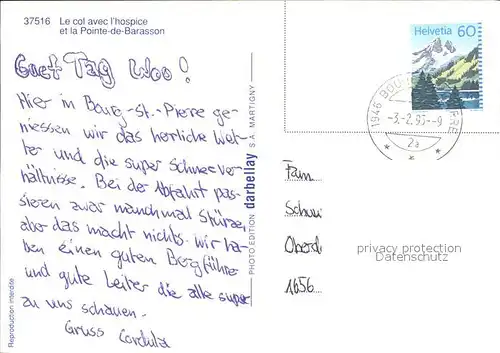 37516 Le col avec l'hospice
et la Pointe-de-Barasson
Guet Tag Woo!
Hier in Bourg-St.-Piere ge-
niessen wir das herliche Wet-
ter und die super Schneever-
hältnisse. Bei der Abfahrt pas-
sieren zwar manchmal Stürze,
aber das macht nichts. Wir ha-
ben einen guten Bergführer
und gute Leiter die alle super
zu uns schauen.
Gruss Cordula
Reproduction interdite
PHOTO EDITION darbellay S.A. MARTIGNY
Helvetia 60
1946 BOU RRE
-3.-2.93--9
2a
Fam
Schwi
Oberd
1656
privacy protection
Datenschutz